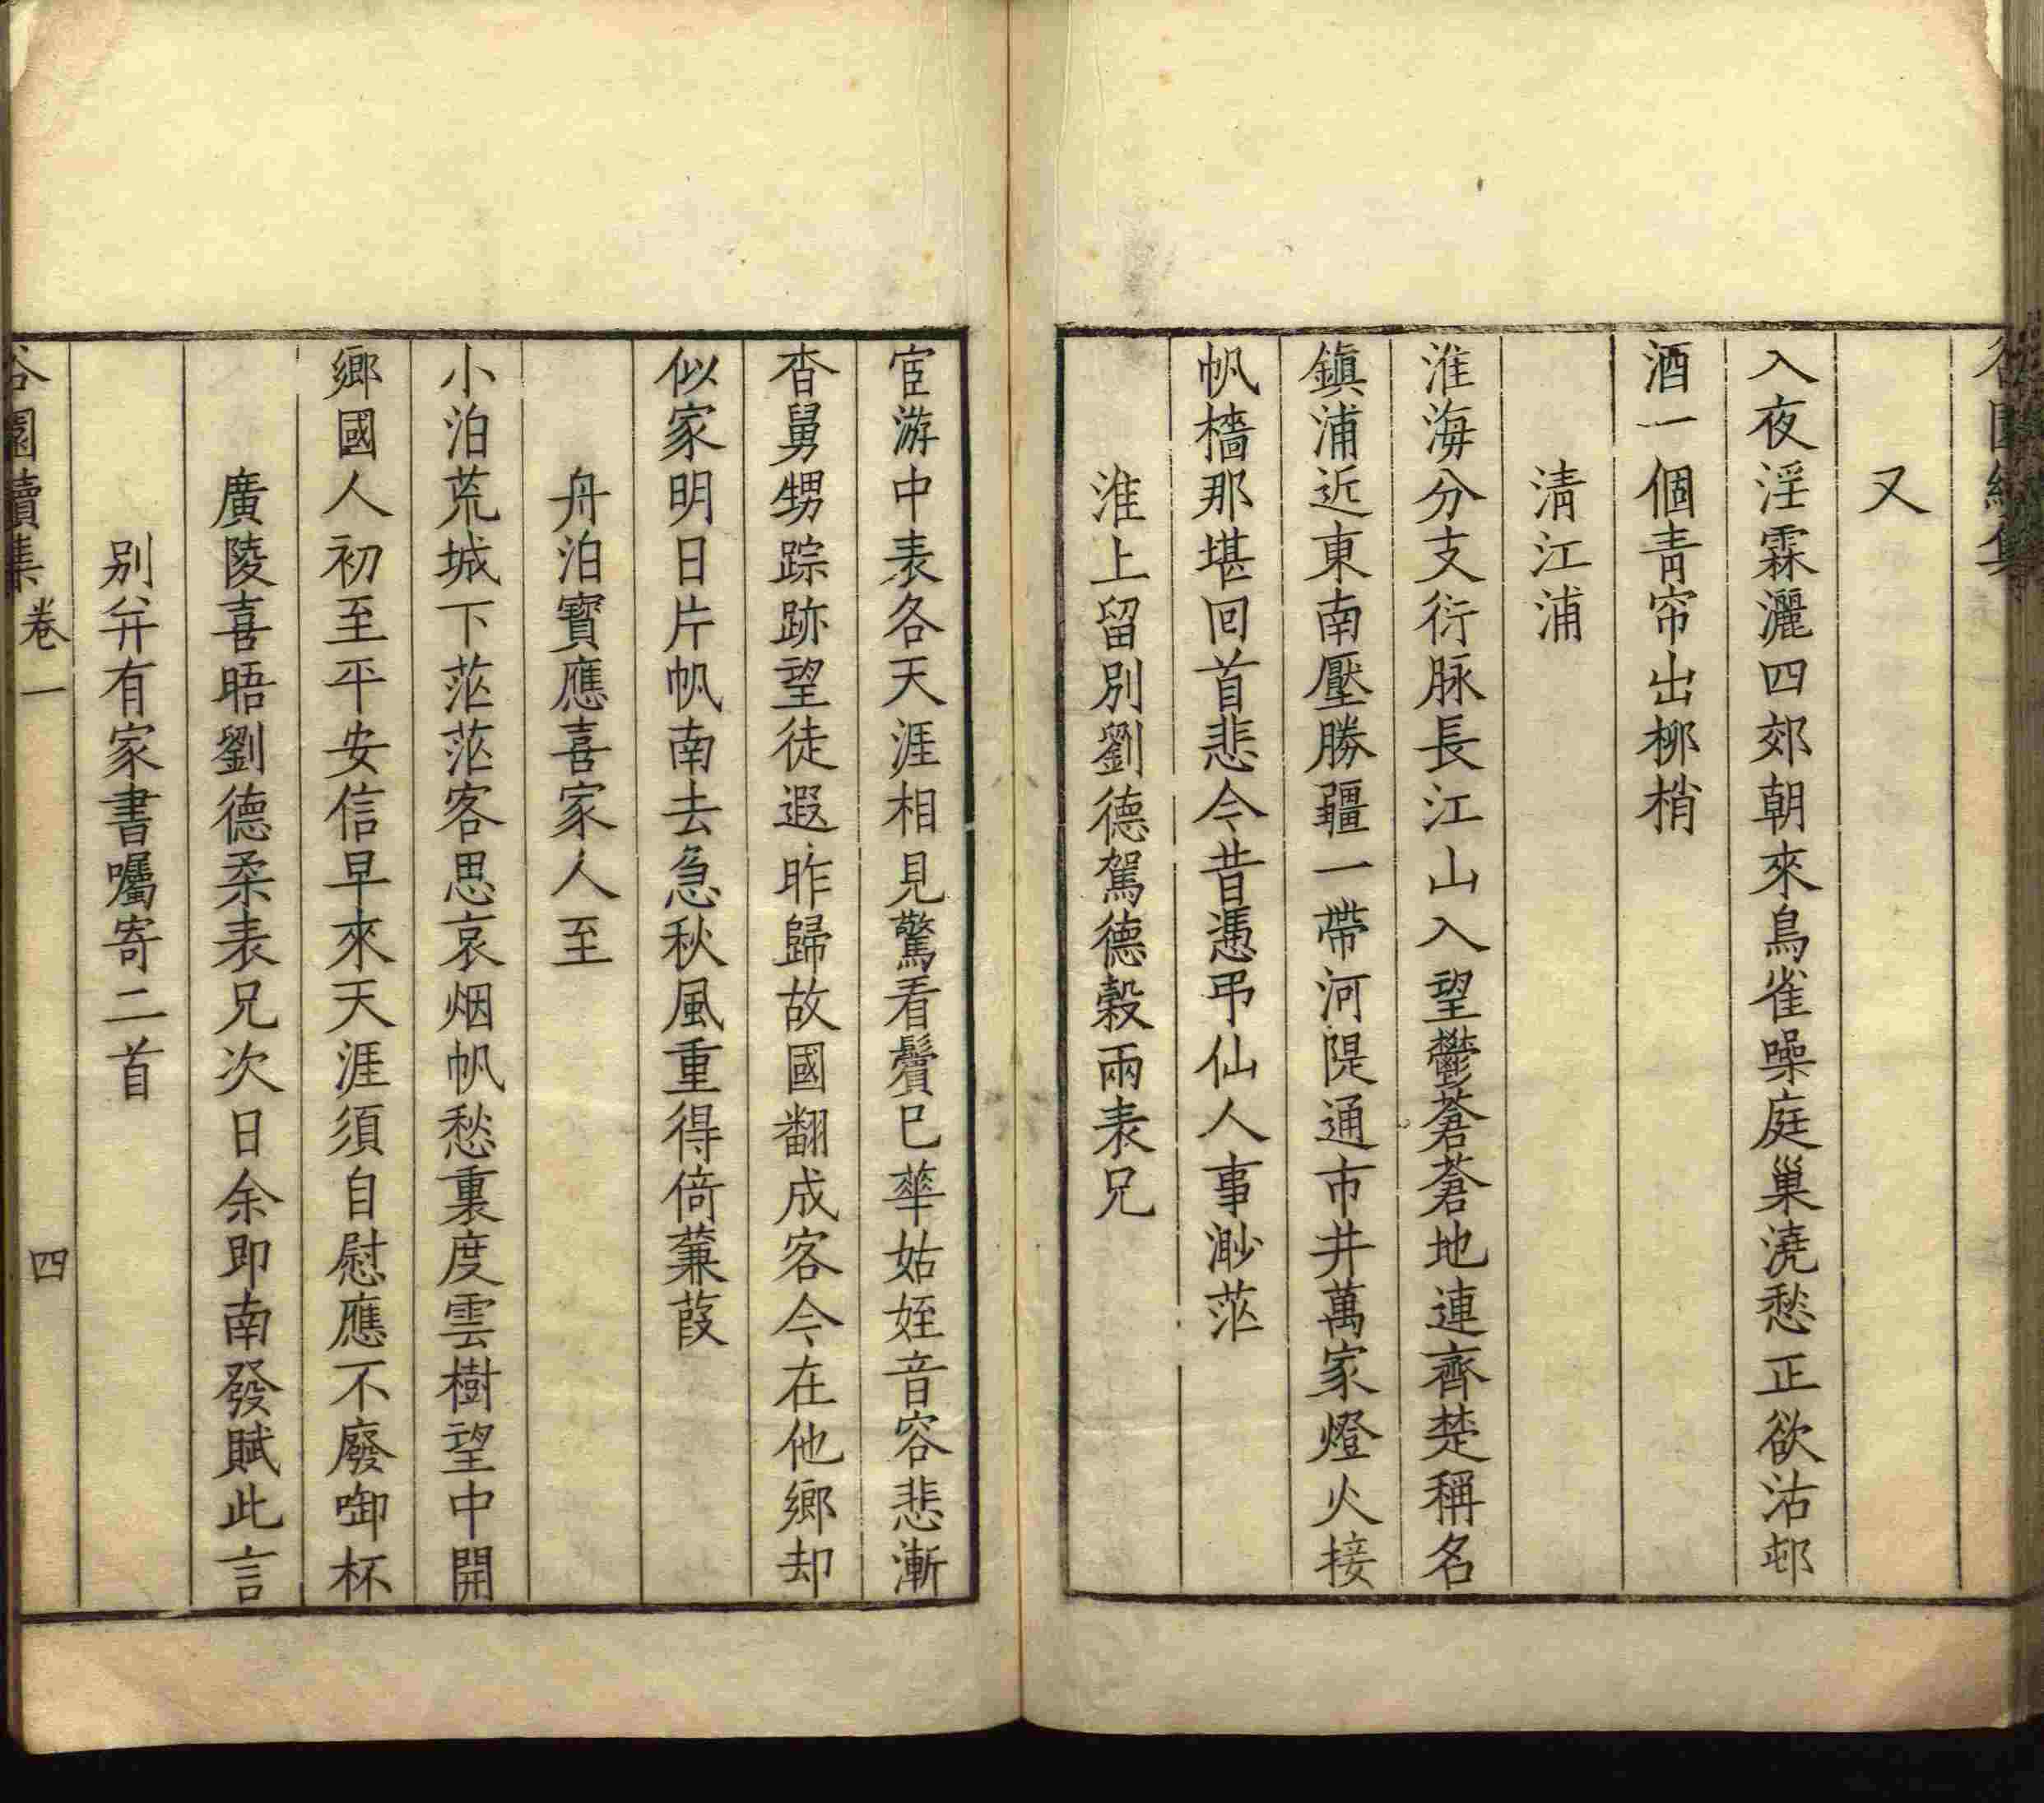 又
入夜淫霖灑四郊朝來鳥雀噪庭巢澆愁正欲沽邨
酒一個青帘出栁梢
清江浦
淮海分支衍脉長江山入望鬱蒼蒼地連齊楚稱名
鎮浦近東南壓勝疆一帶河隄通市井萬家燈火接
帆檣那堪回首悲今昔憑弔仙人事渺茫
淮上留別劉德駕德穀兩表兄
宦游中表各天涯相見驚看鬢已華姑姪音容悲漸
杳舅甥踪跡望徒遐昨歸故國翻成客今在他鄉却
似家明日片帆南去急秋風重得倚蒹葭
舟泊寳應喜家人至
小泊荒城下茫茫客思哀烟帆愁裏度雲樹望中開
鄉國人初至平安信早來天涯須自慰應不廢啣杯
廣陵喜晤劉德柔表兄次日余即南發賦此言
別并有家書囑寄二首
谷園續集 卷一 四